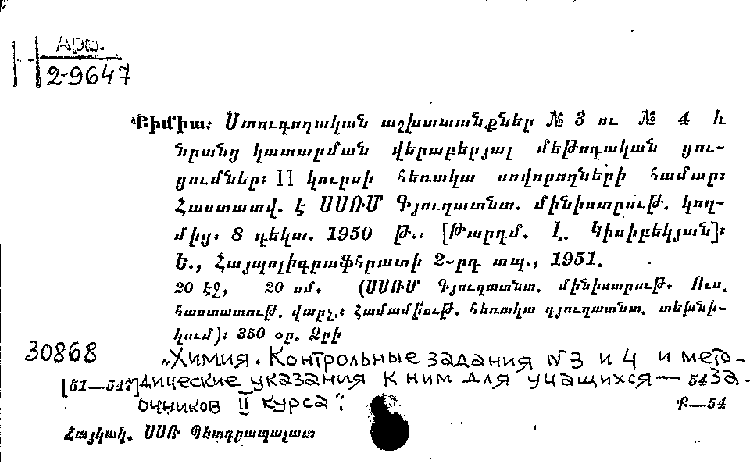 Арм.
2-9647
Քիմիա: Ստուգողական աշխատանքներ № 3 ու № 4 և
նրանց կատարման վերաբերյալ մեթոդական ցու-
ցումներ: II կուրսի հեռակա սովորողների համար:
Հաստատվ. է ՍՍՌՄ Գյուղատնտ. մինիստրութ. կող-
մից: 8 դեկտ. 1950 թ.: [Թարգմ. Լ. Կիսիբեկյան]:
Ե., Հայպոլիգրաֆհրատի 2-րդ տպ., 1951.
20 էջ, 20 սմ. (ՍՍՌՄ Գյուղատնտ. մինիստրութ. Ուս.
հաստատութ. վարչ.: Համամիութ. հեռակա գյուղատնտ. տեխնի-
կում): 350 օր. Ձրի
30868 „Химия. Контрольные задания №3 и 4 и мето-
[51—547] дические указания к ним для учащихся — 54 За-
очников II курса":
Ք—54
Հայկակ. ՍՍՌ Պետգրապալատ